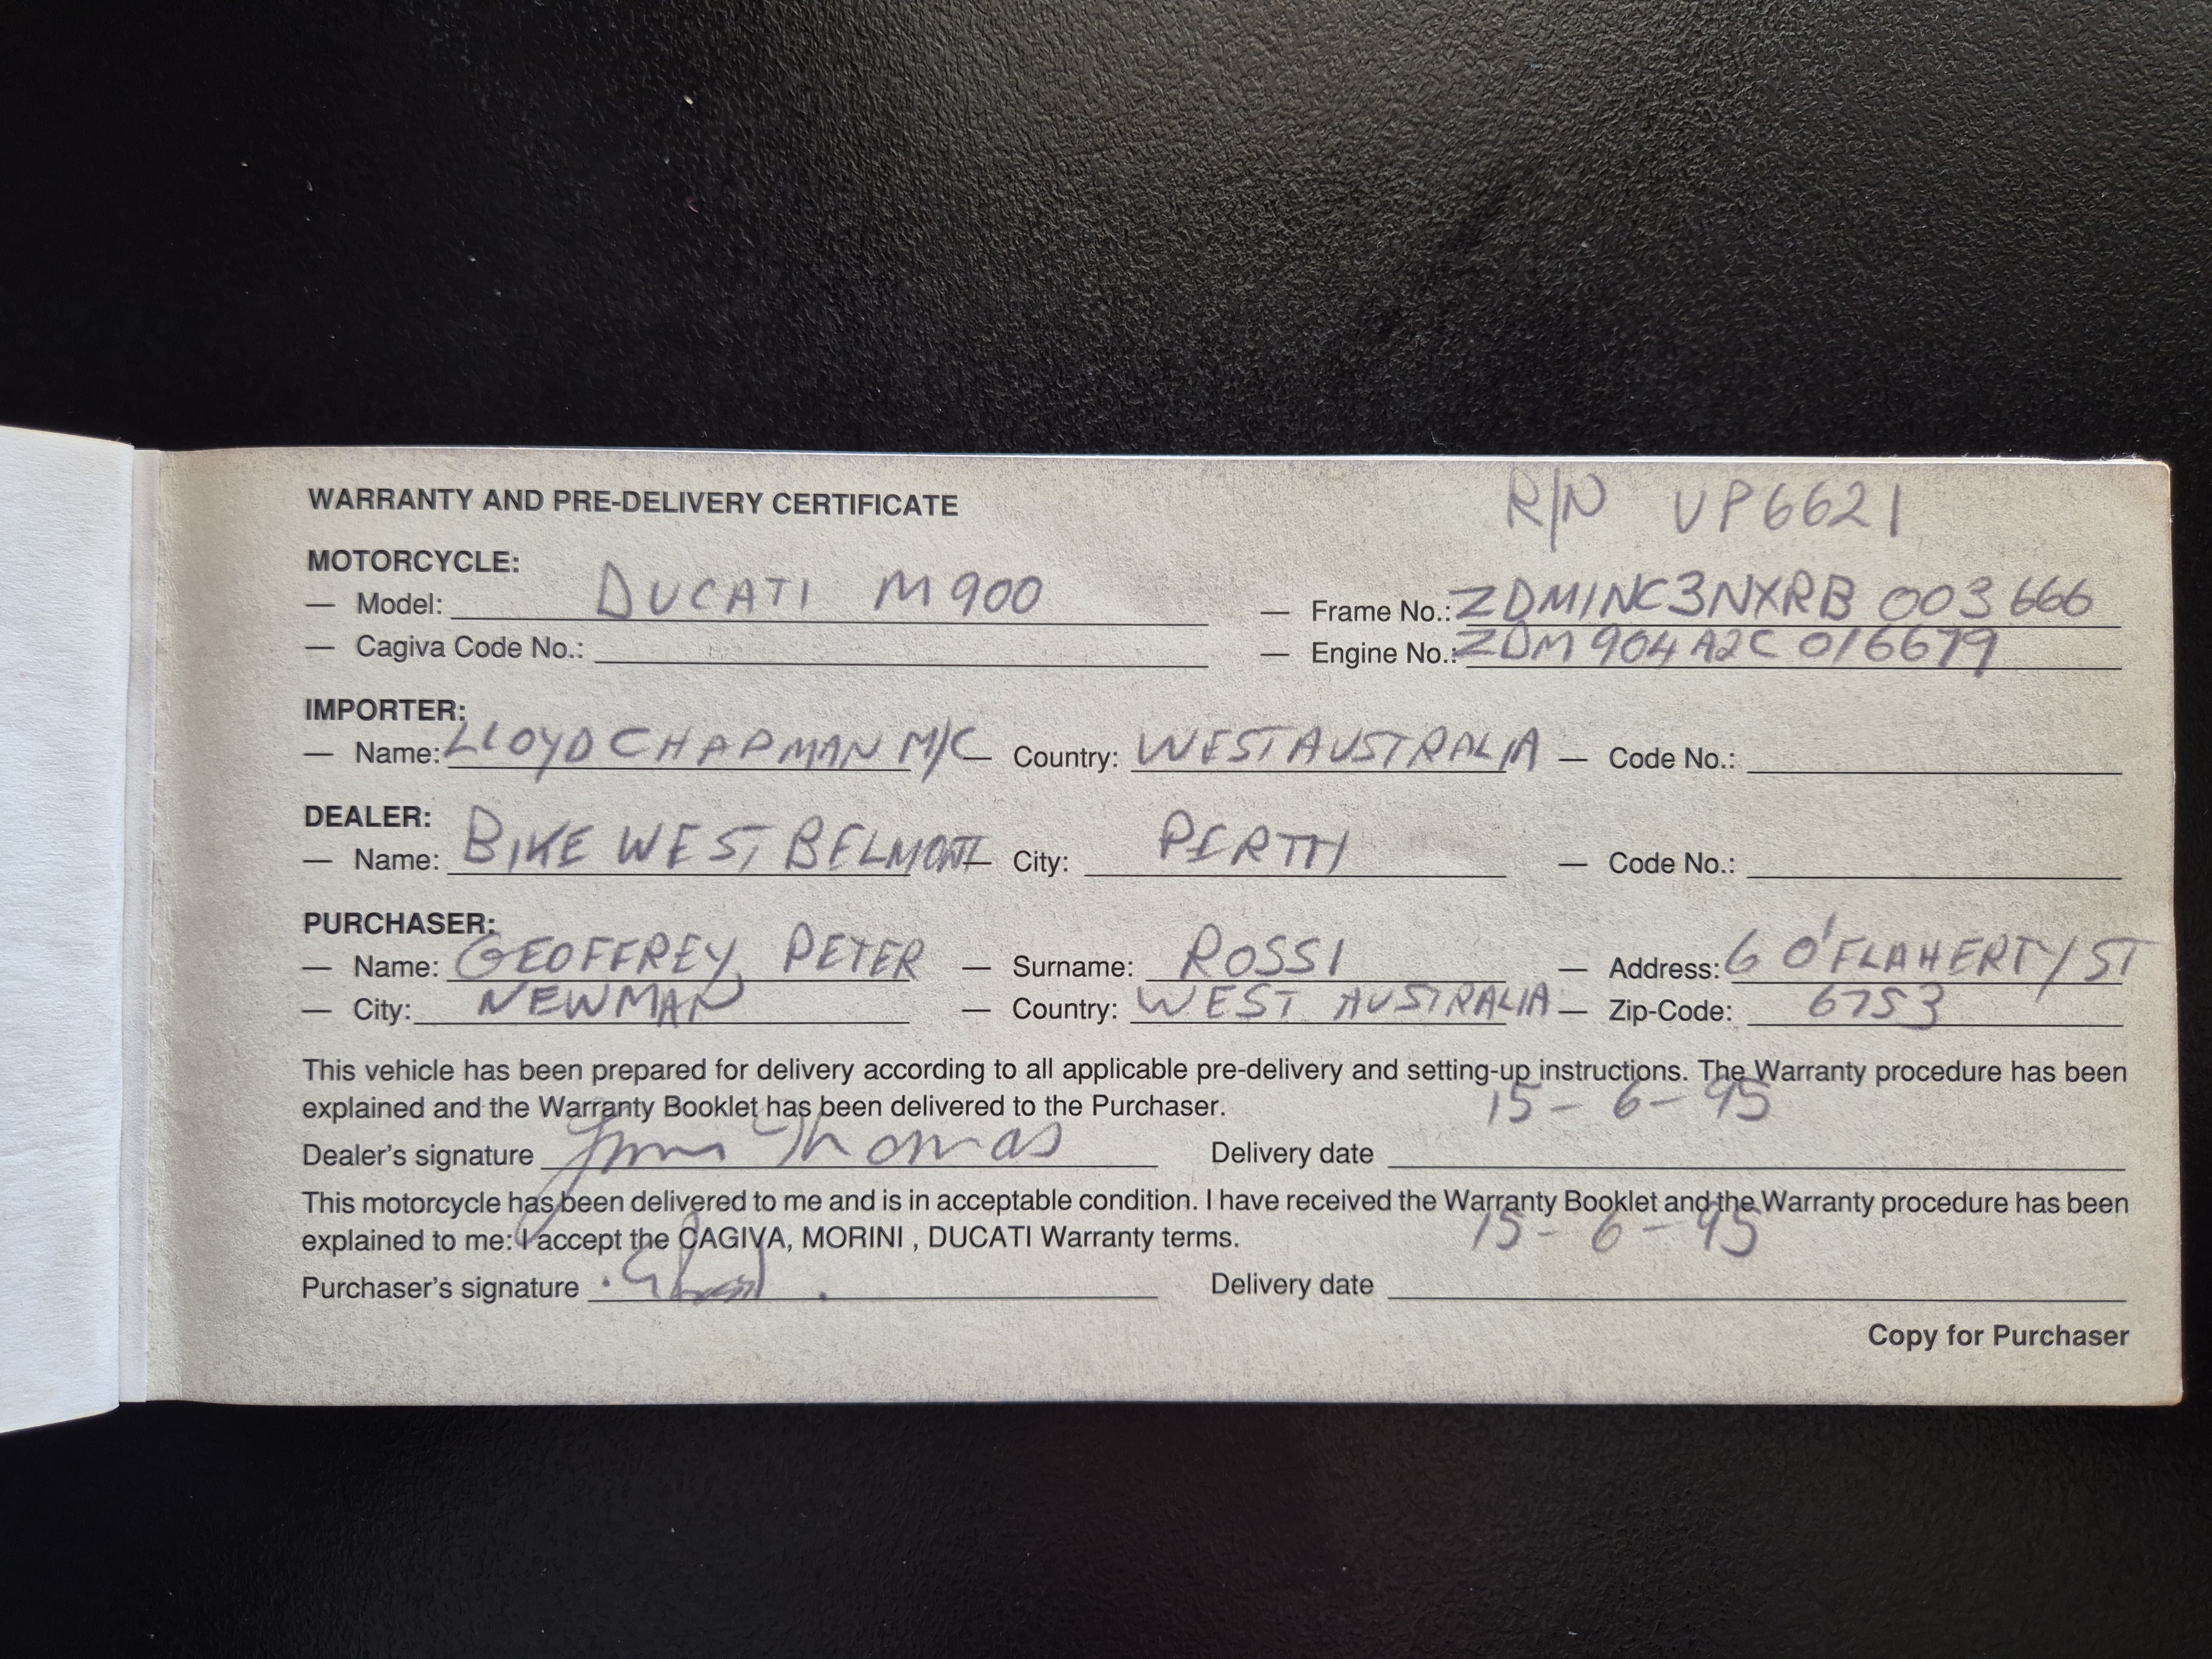 R/N VP6621
WARRANTY AND PRE-DELIVERY CERTIFICATE
MOTORCYCLE:
— Model: DUCATI M900 — Frame No.: ZDM1NC3NXRB 003666
— Cagiva Code No.: — Engine No.: ZDM904A2C 016679
IMPORTER:
— Name: LLOYD CHAPMAN M/C — Country: WEST AUSTRALIA — Code No.:
DEALER:
— Name: BIKE WEST BELMONT — City: PERTH — Code No.:
PURCHASER:
— Name: GEOFFREY PETER — Surname: ROSSI — Address: 6 O'FLAHERTY ST
— City: NEWMAN — Country: WEST AUSTRALIA — Zip-Code: 6753
This vehicle has been prepared for delivery according to all applicable pre-delivery and setting-up instructions. The Warranty procedure has been
explained and the Warranty Booklet has been delivered to the Purchaser.
Dealer's signature Thomas Delivery date 15-6-95
This motorcycle has been delivered to me and is in acceptable condition. I have received the Warranty Booklet and the Warranty procedure has been
explained to me: I accept the CAGIVA, MORINI , DUCATI Warranty terms.
Purchaser's signature Delivery date 15-6-95
Copy for Purchaser